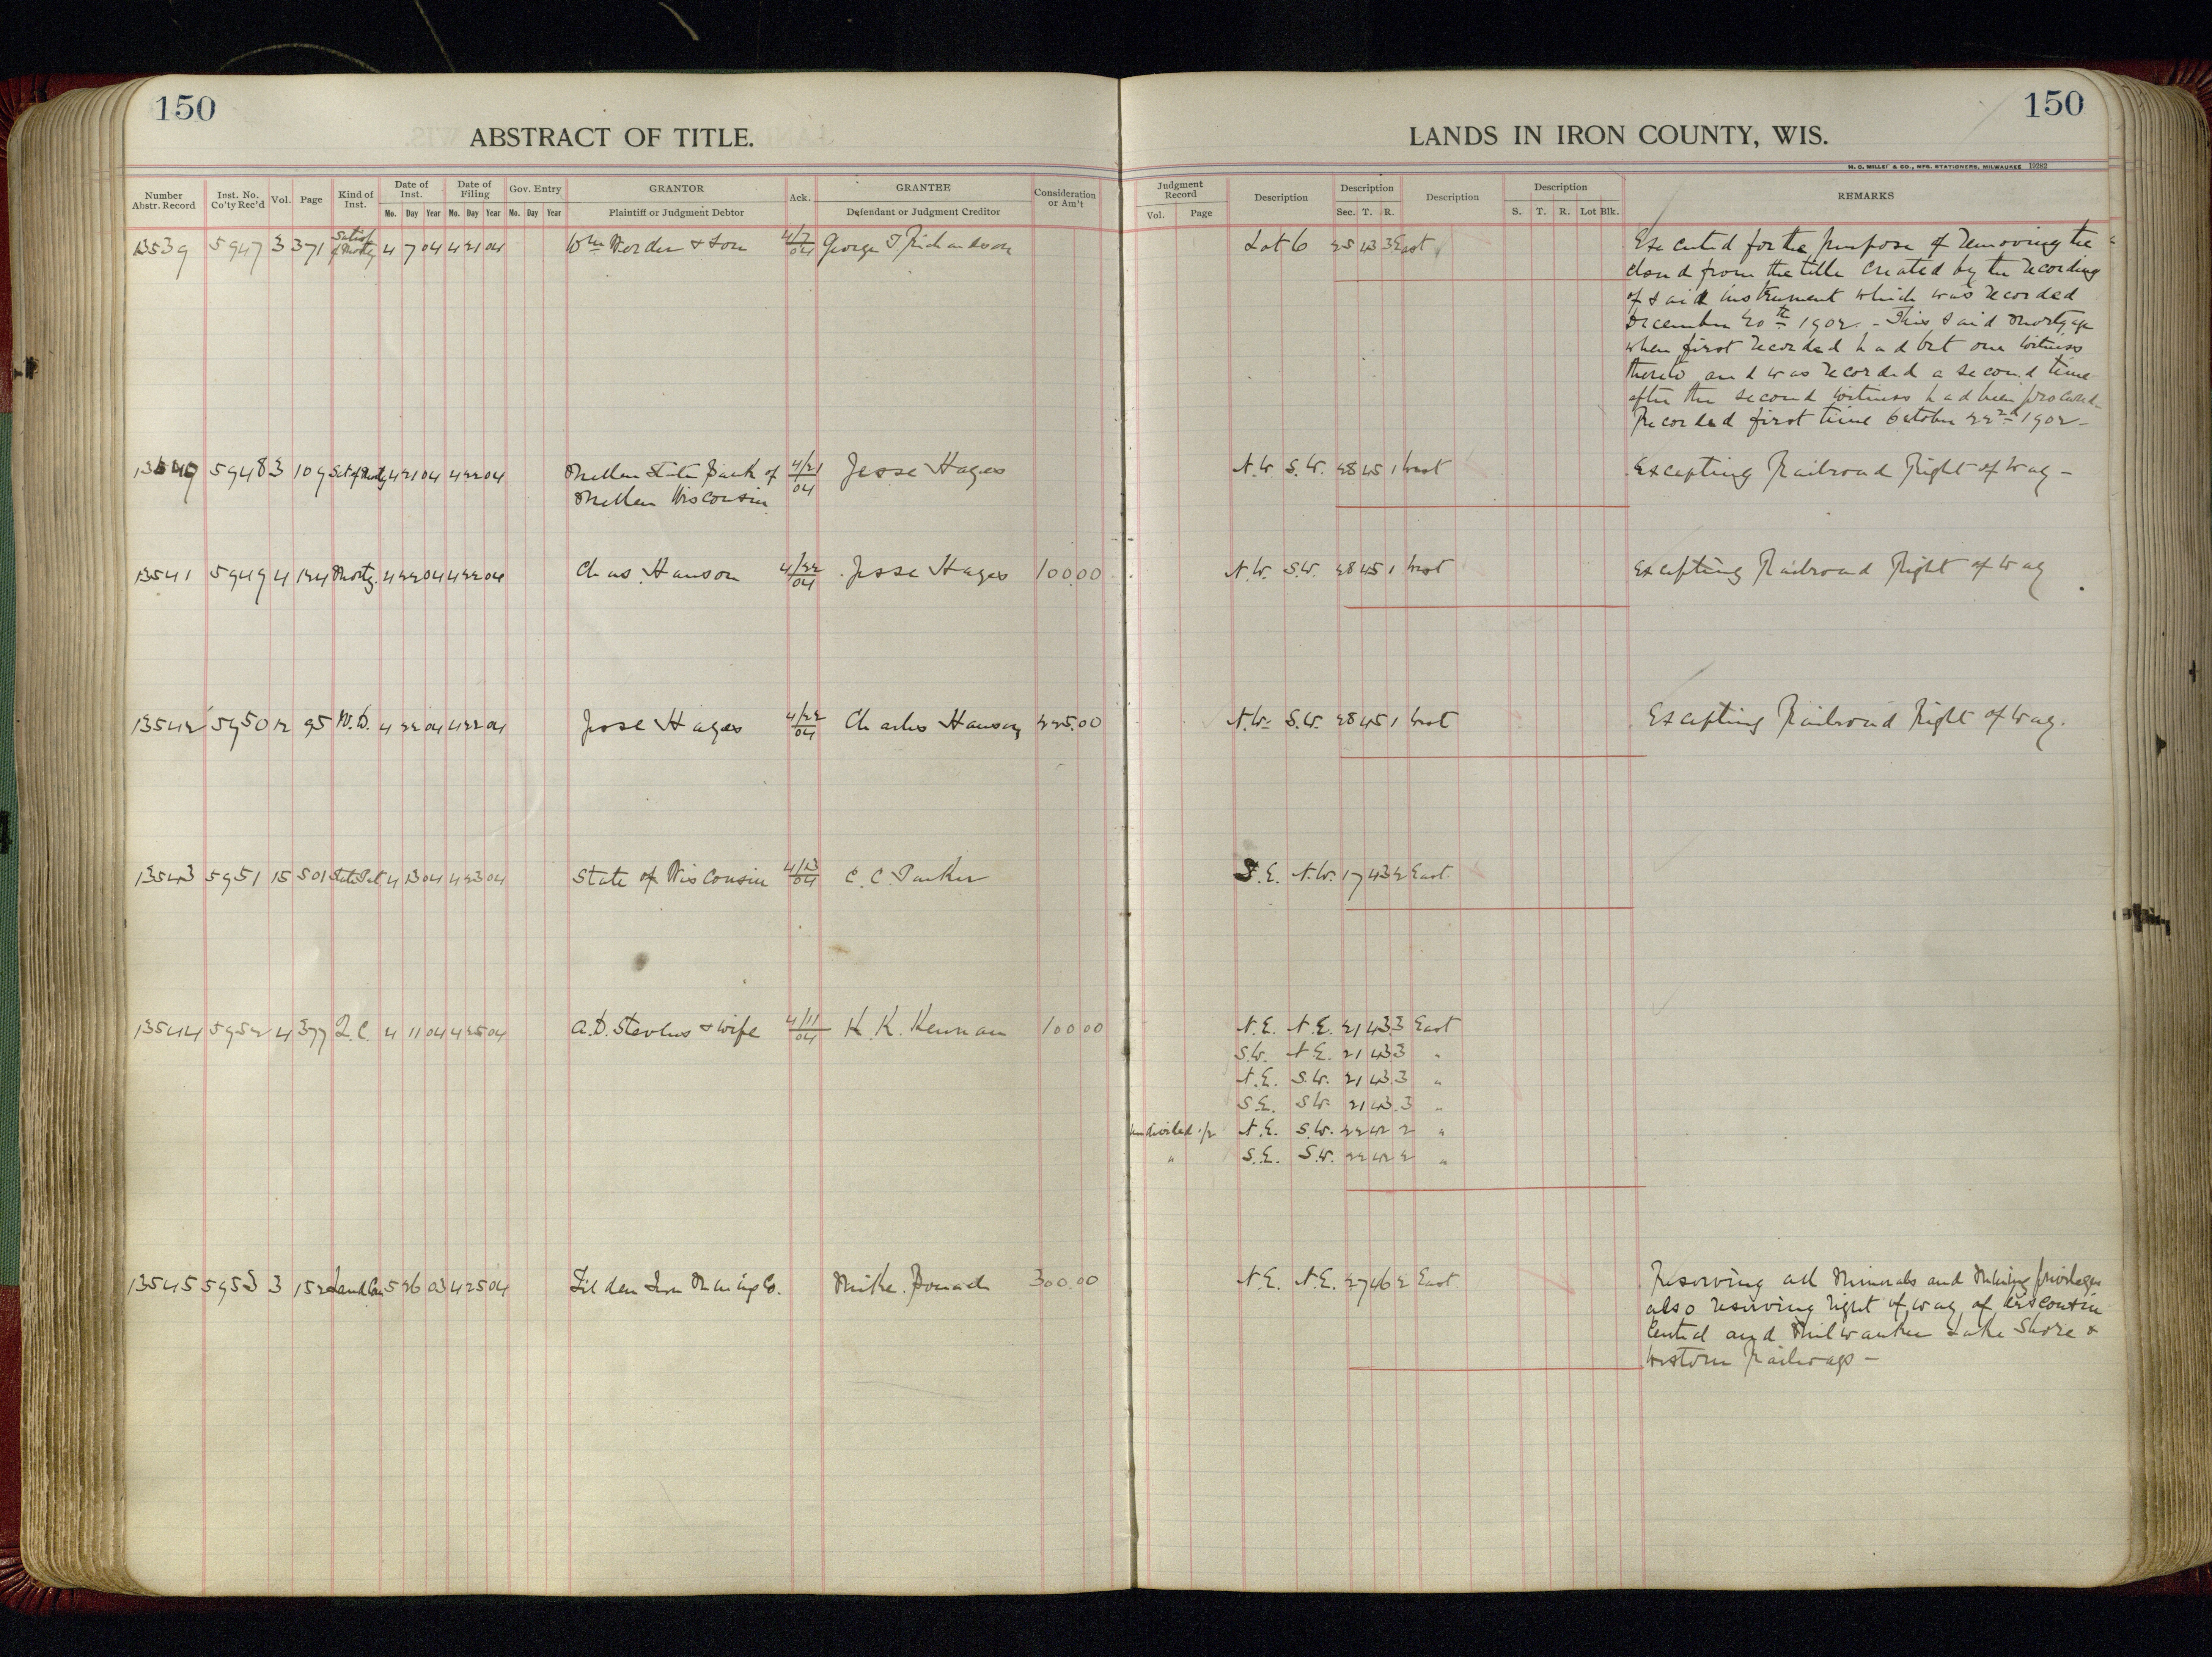 150
ABSTRACT OF TITLE.
150
LANDS IN IRON COUNTY, WIS.
H. C. MILLER & CO., MFG. STATIONERS, MILWAUKEE 19282
Number Abstr. Record | Inst. No. Co'ty Rec'd | Vol. | Page | Kind of Inst. | Date of Inst. Mo. Day Year | Date of Filing Mo. Day Year | Gov. Entry Mo. Day Year | GRANTOR Plaintiff or Judgment Debtor | Ack. | GRANTEE Defendant or Judgment Creditor | Consideration or Am't
Judgment Record Vol. Page | Description | Description Sec. T. R. | Description | Description S. T. R. Lot Blk. | REMARKS
13539 5947 3 371 Satisf of Mortg 4 7 04 4 21 04 Wm & Son 4/7/04 George T. Richardson Lot 6 25 43 3 East Executed for the purpose of removing the
cloud from the title created by the recording
of said instrument which was recorded
December 20th 1902. - This said Mortgage
when first recorded had but one witness
thereto and was recorded a second time
after the second witness had been procured
Recorded first time October 22nd 1902 -
13540 5948 3 109 Sat of Mortg 4 21 04 4 22 04 Mellen State Bank of 4/21/04 Jesse Hages N.W. S.W. 28 45 1 West Excepting Railroad Right of Way -
Mellen Wisconsin
13541 5949 4 124 Mortg. 4 22 04 4 22 04 Chas. Hanson 4/22/04 Jesse Hages 100.00 N.W. S.W. 28 45 1 West Excepting Railroad Right of Way
13542 5950 12 95 W.D. 4 22 04 4 22 04 Jesse Hages 4/22/04 Charles Hanson 225.00 N.W. S.W. 28 45 1 West Excepting Railroad Right of Way.
13543 5951 15 501 State Pat 4 13 04 4 23 04 State of Wisconsin 4/13/04 C. C. Parker S.E. N.W. 17 43 2 East
13544 5952 4 377 Q.C. 4 11 04 4 25 04 A.D. Stevens & wife 4/11/04 K. K. Kennan 100.00 N.E. N.E. 21 43 3 East
S.W. N.E. 21 43 3 "
N.E. S.W. 21 43 3 "
S.E. S.W. 21 43 3 "
Undivided 1/2 N.E. S.W. 22 42 2 "
" S.E. S.W. 22 42 2 "
13545 5953 3 152 Land Con 5 26 03 4 25 04 Tilden Iron Mining Co. Mike 300.00 N.E. N.E. 27 46 2 East Reserving all Minerals and Mining privileges
also reserving right of way of Wisconsin
Central and Milwaukee Lake Shore &
Western Railways -